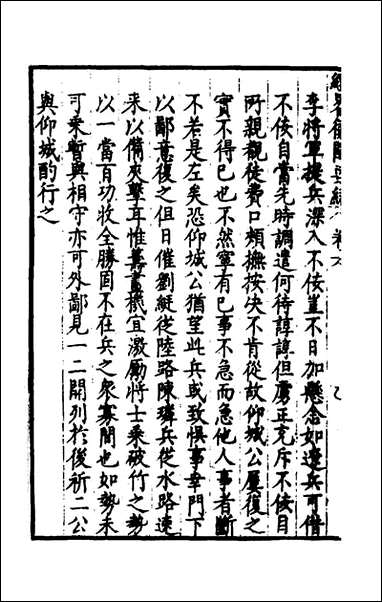 經畧復國要編 卷六
李將軍提兵深入不佞豈不日加懸念如遼兵可借
不佞自當先時調遣何待諄諄但虜正充斥不佞目
所親觀徒費口頰撫按决不肯從故仰城公屢復之
實不得已也不然寧有已事不急而急他人事者斷
不若是左矣恐仰城公猶望此兵或致悞事幸門下
以鄙意復之但日催劉綎從陸路陳璘兵從水路速
来以備夾擊耳惟籌畫機宜激勵將士乘破竹之勢
以一當百功收全勝固不在兵之衆寡間也如勢未
可乘暫與相守亦可外鄙見一二開列於後祈二公
與仰城酌行之